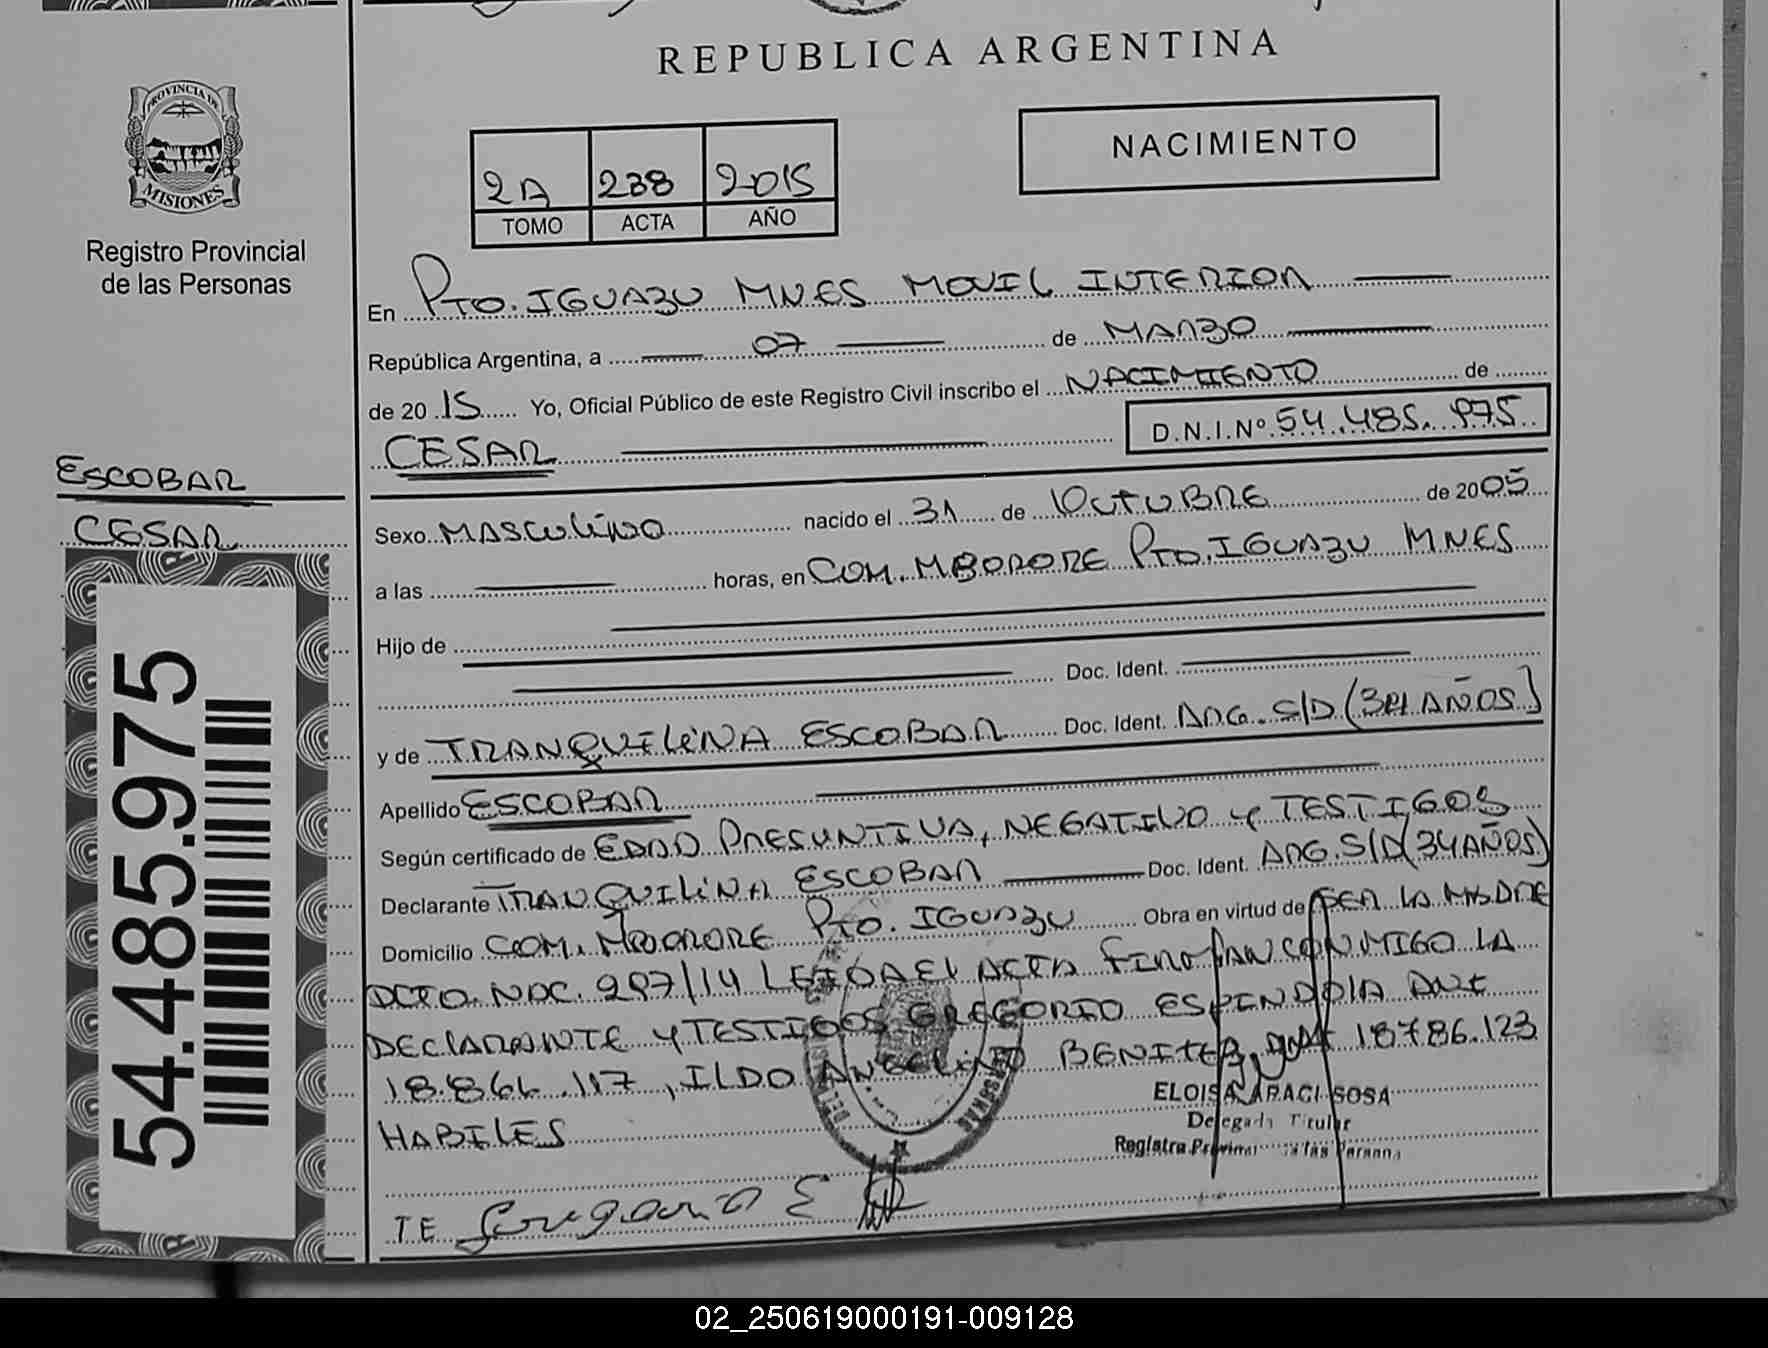 REPUBLICA ARGENTINA
NACIMIENTO
2A 238 2015
TOMO ACTA AÑO
PROVINCIA DE
MISIONES
Registro Provincial
de las Personas
ESCOBAR
CESAR
54.485.975
En PTO. IGUAZU MNES MOVIL INTERIOR
República Argentina, a 07 de MARZO
de 20 15 Yo, Oficial Público de este Registro Civil inscribo el NACIMIENTO de
CESAR D.N.I.Nº 54.485.975
Sexo MASCULINO nacido el 31 de OCTUBRE de 2005
a las horas, en COM. MBORORE PTO. IGUAZU MNES
Hijo de
Doc. Ident.
y de TRANQUILINA ESCOBAR Doc. Ident. ARG. S/D (34 AÑOS)
Apellido ESCOBAR
Según certificado de EDAD PRESUNTIVA, NEGATIVO y TESTIGOS
Declarante TRANQUILINA ESCOBAR Doc. Ident. ARG. S/D (34 AÑOS)
Domicilio COM. MBORORE PTO. IGUAZU Obra en virtud de SER LA MADRE
DCTO. NAC. 297/14 LEIDA EL ACTA FIRMAN CONMIGO LA
DECLARANTE y TESTIGOS GREGORIO ESPINDOLA DNI
18.866.117, ILDO ANGELINO BENITEZ, DNI 18786.123
HABILES
ELOISA ARACI SOSA
Delegada Titular
Registro Provincial de las Personas
TE Gregorio E
02_250619000191-009128